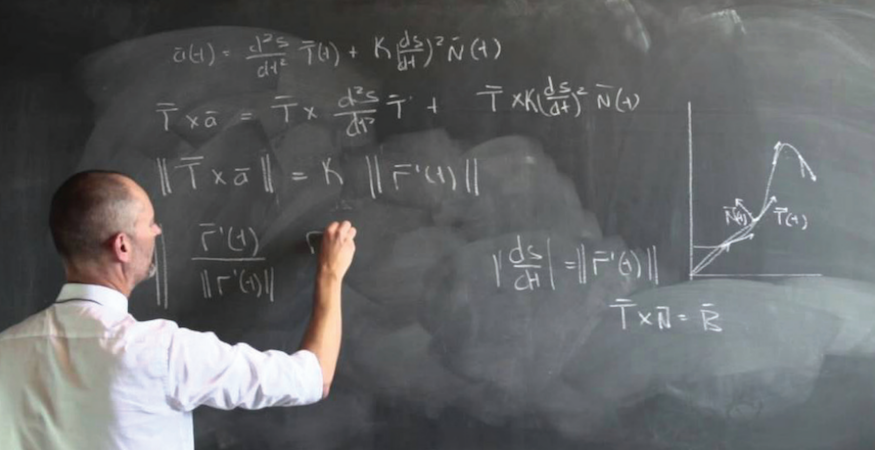 ā(t) = d²s/dt² T̄(t) + K(ds/dt)² N̄(t)
T̄ × ā = T̄ × d²s/dt² T̄ + T̄ × K(ds/dt)² N̄(t)
‖T̄ × ā‖ = K ‖r̄'(t)‖
‖ r̄'(t)/‖r̄'(t)‖ r
|ds/dt| = ‖r̄'(t)‖
T̄ × N̄ = B̄
N̄(t) T̄(t)